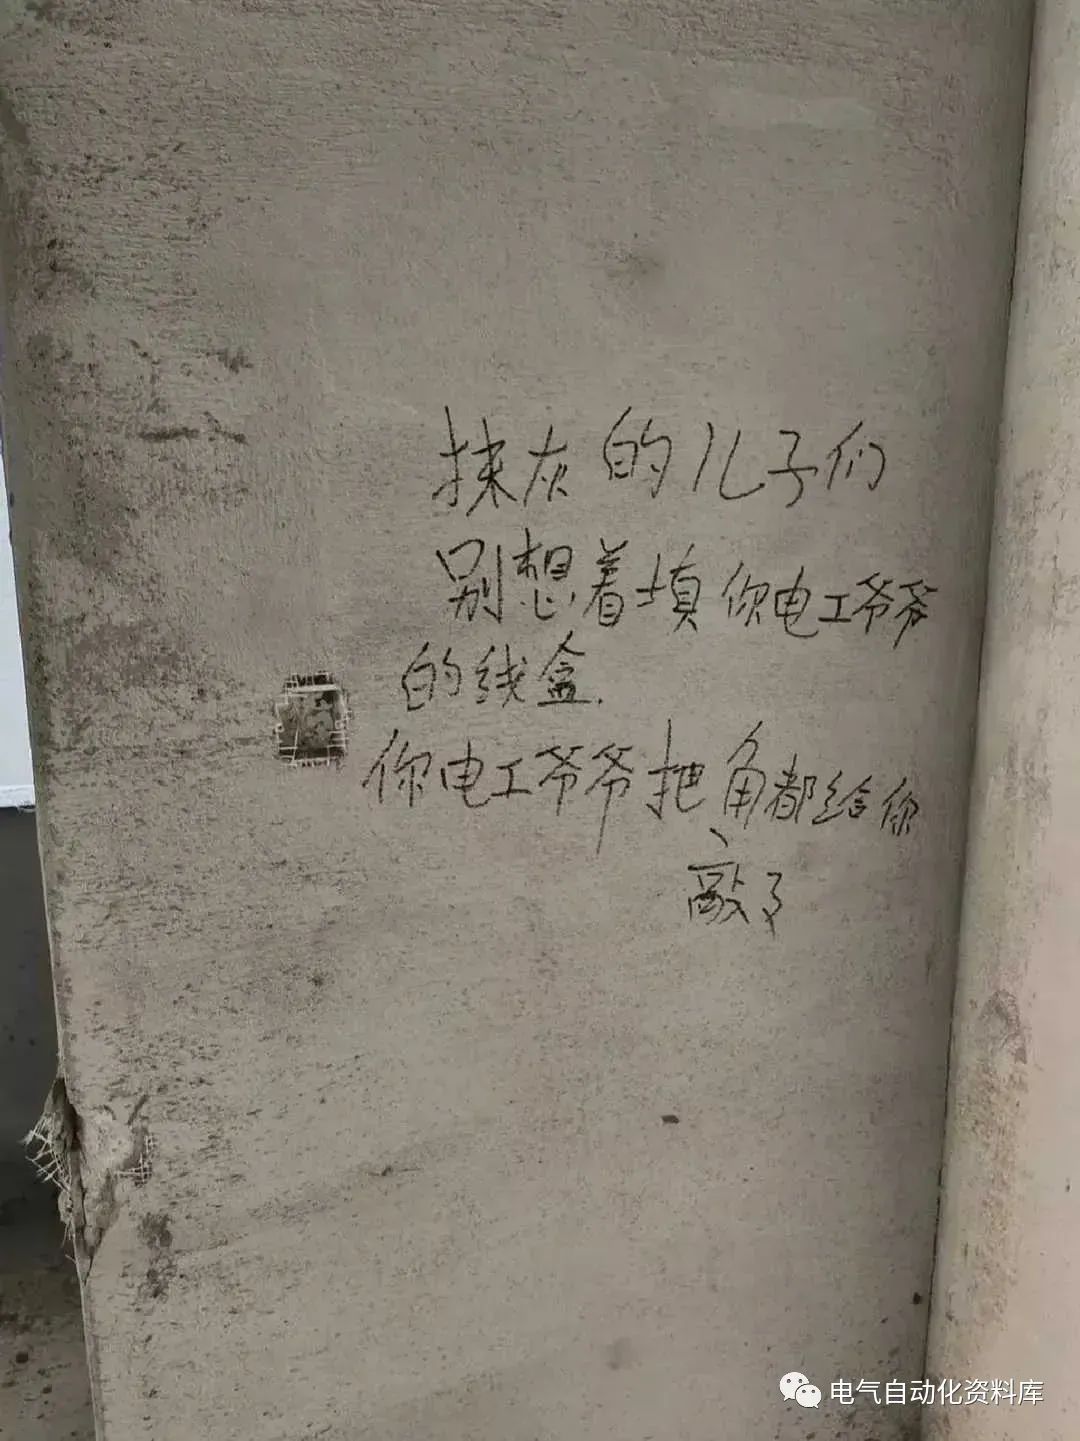 抹灰的儿子们
别想着填你电工爷爷
的线盒.
你电工爷爷把角都给你
敲了
电气自动化资料库